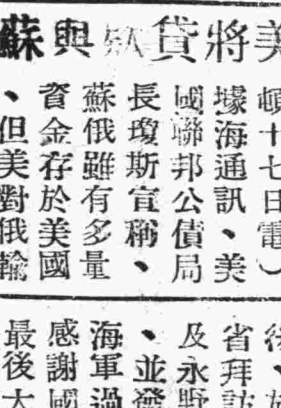 美將貸款與蘇
頓十七日電︶
據海通訊、美
國聯邦公債局
長瓊斯宣稱、
蘇俄雖有多量
資金存於美國
、但美對俄輸
省拜訪
及永野
、並發
海軍過
感謝國
最後大